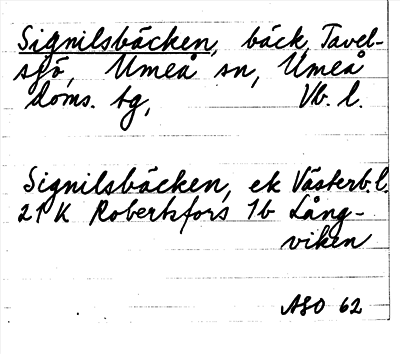 Signilsbäcken, bäck, Tavel-
sjö, Umeå sn, Umeå
doms. tg, Vb. l.
Signilsbäcken, ek Västerb.l.
21 K Robertsfors 1b Lång-
viken
ASO 62